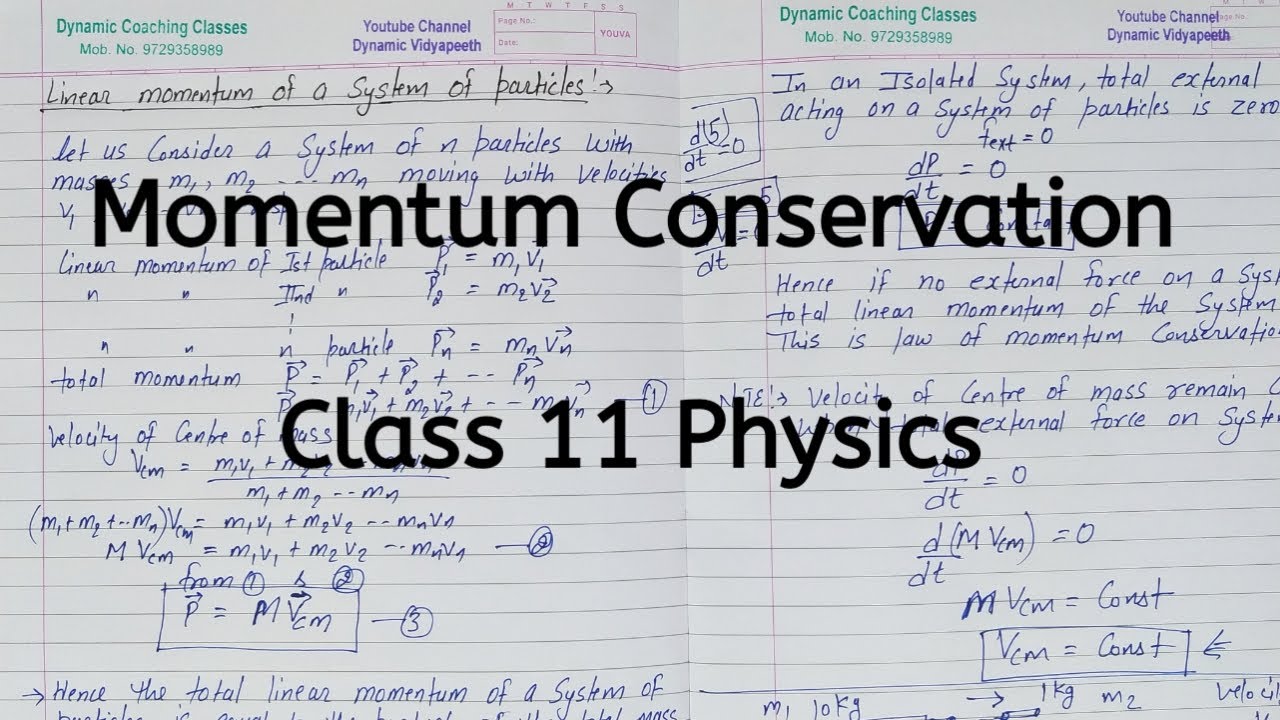 Dynamic Coaching Classes
Mob. No. 9729358989
Youtube Channel
Dynamic Vidyapeeth
M T W T F S S
Page No.:
Date:
YOUVA
Linear momentum of a System of particles!→
let us Consider a System of n particles with
masses m₁, m₂ --- mn moving with velocities
v₁
Linear momentum of Ist particle P⃗₁ = m₁v₁
" " IInd " P⃗₂ = m₂v⃗₂
" " n particle P⃗n = mnv⃗n
total momentum P⃗ = P⃗₁ + P⃗₂ + -- P⃗n
P⃗ m₁v⃗₁ + m₂v⃗₂ + -- mnv⃗n ①
Velocity of Centre of mass
Vcm = m₁v₁ + m₂
m₁ + m₂ --- mn
(m₁+m₂+--mn)Vcm = m₁v₁ + m₂v₂ --- mnvn
M Vcm = m₁v₁ + m₂v₂ --- mnvn —②
from ① & ②
P⃗ = M V⃗cm —③
→ Hence the total linear momentum of a System of
Momentum Conservation
Class 11 Physics
Dynamic Coaching Classes
Mob. No. 9729358989
Youtube Channel
Dynamic Vidyapeeth
M T W T F S S
In an Isolated System, total external
acting on a System of particles is zero
d(5)/dt = 0
fext = 0
dP/dt = 0
Hence if no external force on a Sys
total linear momentum of the System
This is law of momentum Conservatio
Velocity of Centre of mass remain
external force on Syste
dP/dt = 0
d/dt (M Vcm) = 0
M Vcm = Const
Vcm = Const ⇐
m₁ 10kg → 1kg m₂ Veloci